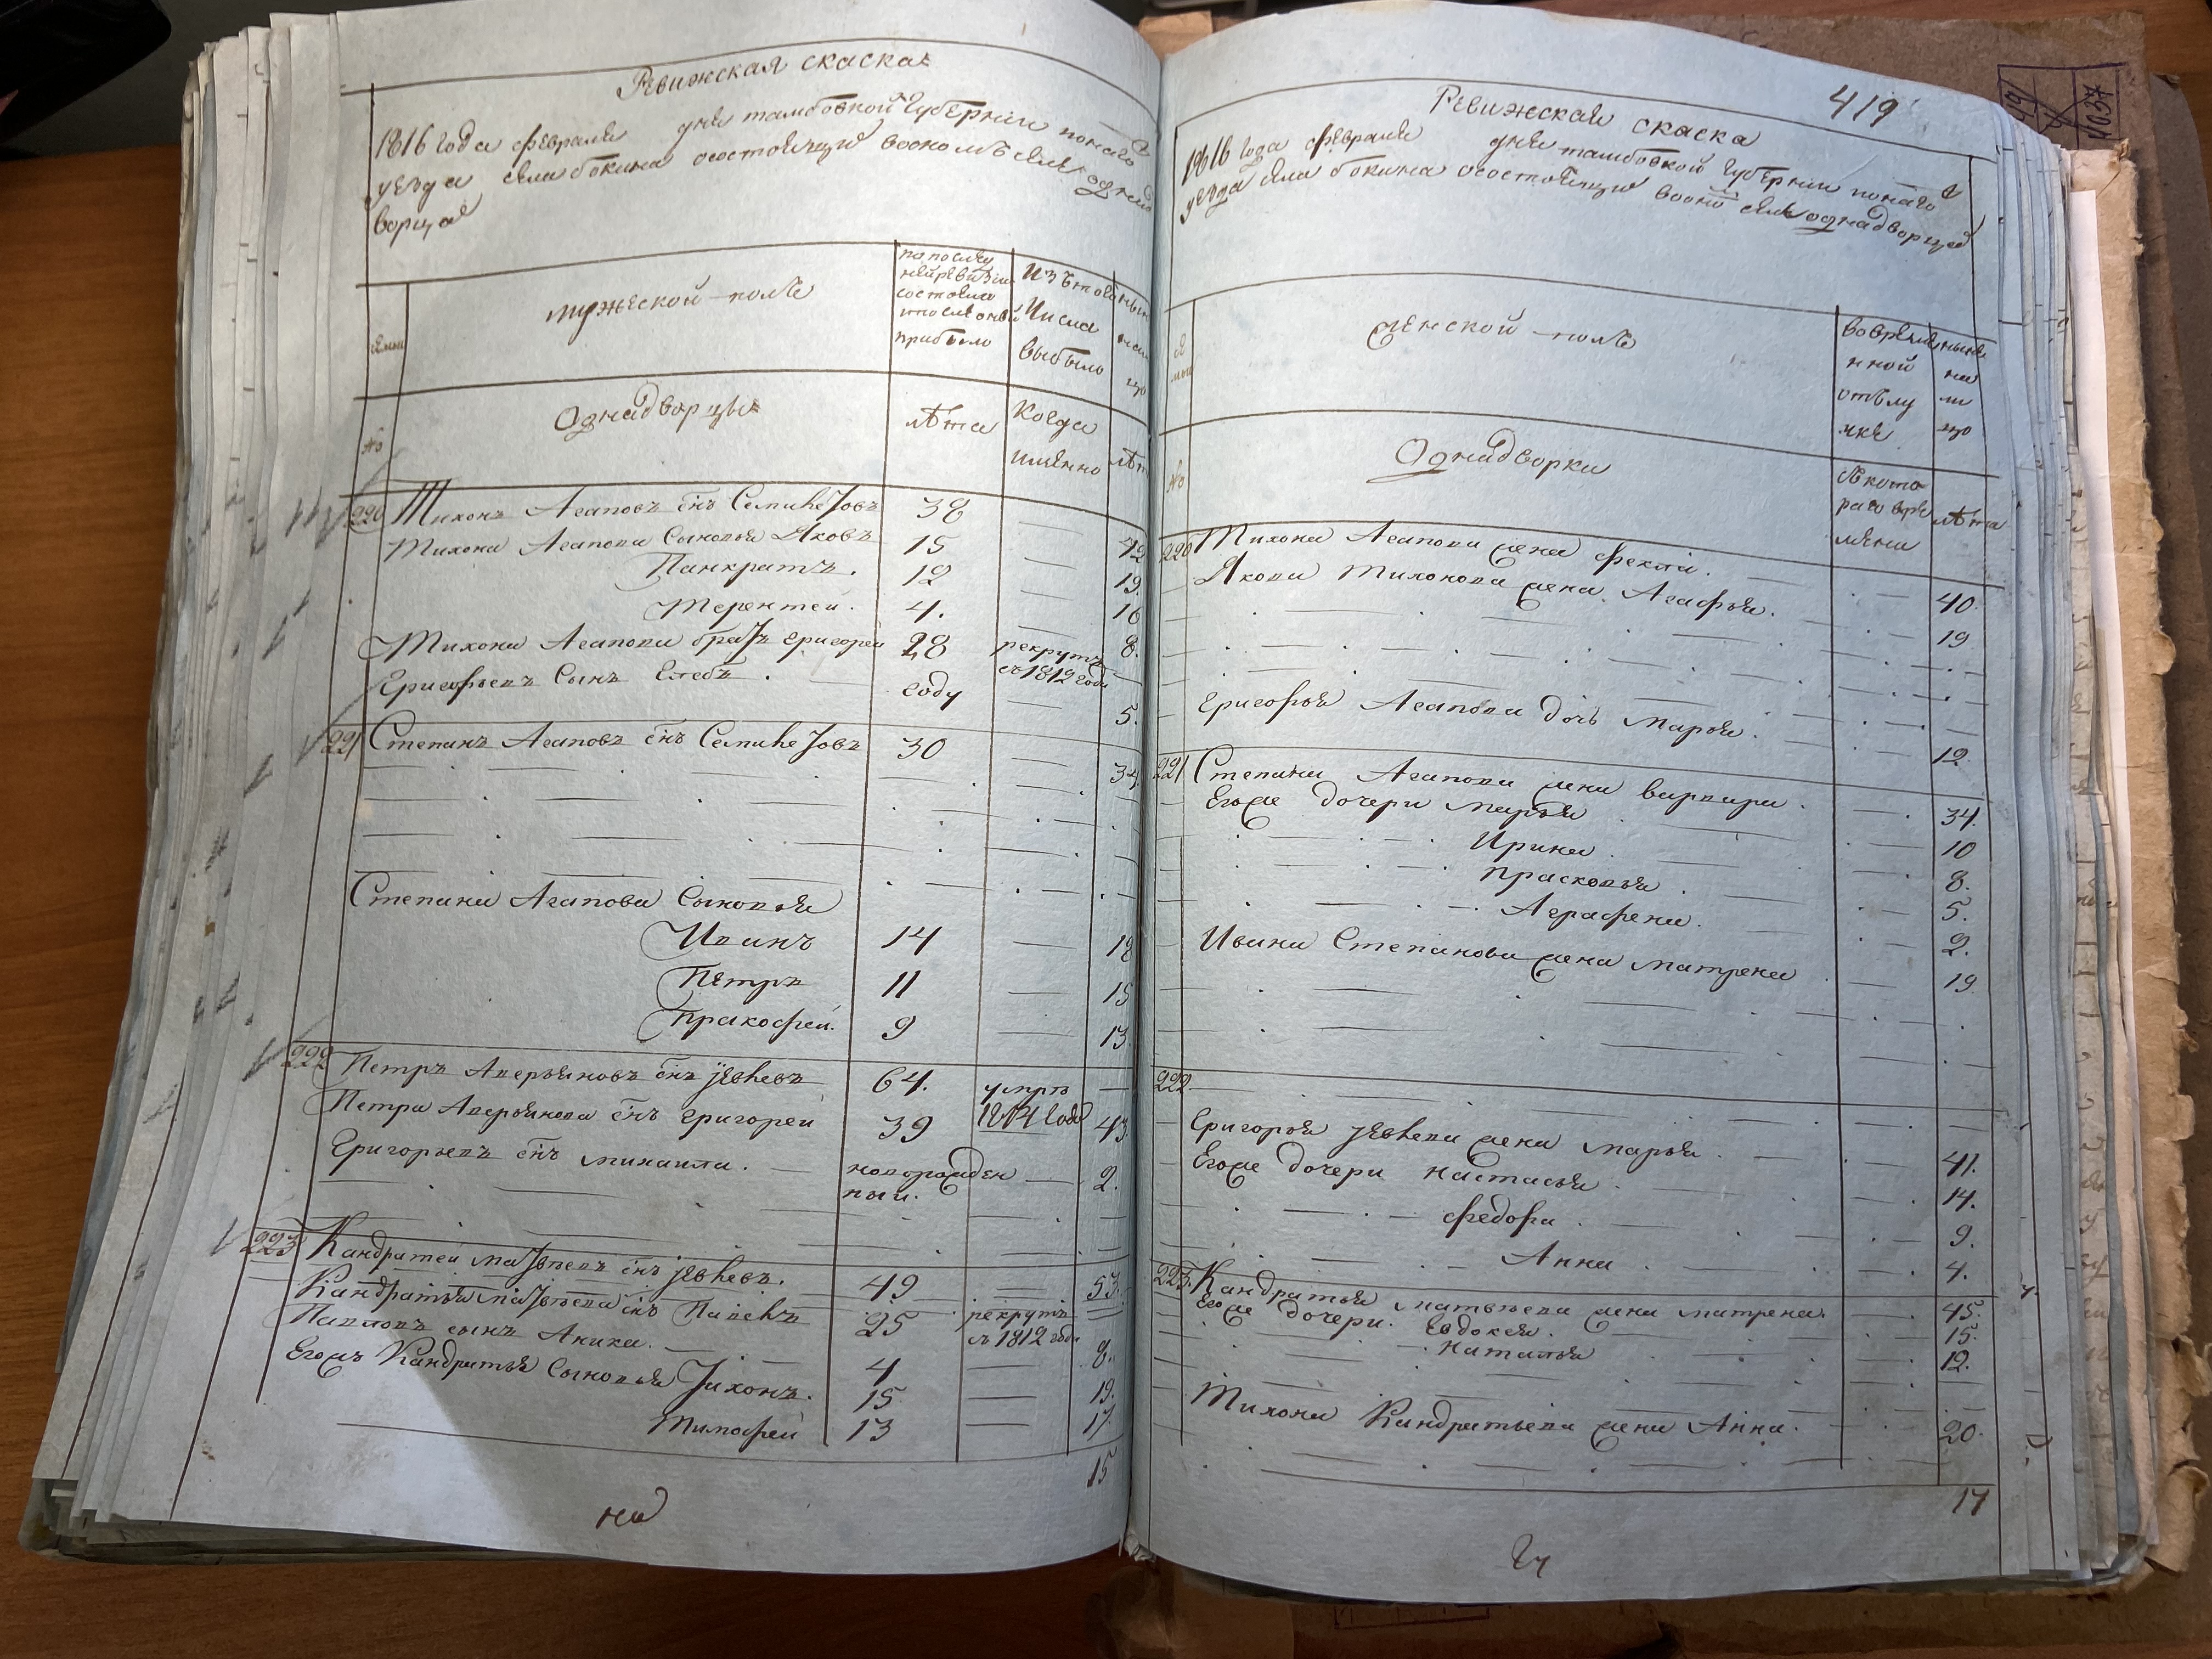 Ревижская скаска
1816 года февраля дня тамбовкой Губернии
уезда села бокина
ворца
Семьи
мужеской полъ
по послед
ней ревизии
состояло
и после оной
прибыло
Изъ того
числа
выбыло
№
Однадворцы
лѣта
Когда
именно
лѣт
220 Тихонъ Агаповъ сн̃ъ 38 42
Тихона Агапова Сыновья Яковъ 15 19.
Панкратъ. 12 16
Терентей. 4. 8.
Тихона Агапова братъ григорей 28 рекрутъ
съ 1812 года
Григорьевъ Сынъ Глебъ. году 5.
221 Степанъ Агаповъ сн̃ъ 30 34.
Степана Агапова Сыновья
Иванъ 14 18
Петръ 11 15
Пракофей. 9 13
222 Петръ Аверьяновъ сн̃ъ 64. умре
1814 года
Петра Аверьянова сн̃ъ григорей 39 43
Григорьевъ сн̃ъ михаила. новорожден
ный. 2.
223 Кандратей матвеевъ сн̃ъ 49 53.
Кандратья матвеева сн̃ъ Павелъ 25 рекрутъ
съ 1812 года
Павловъ сынъ Аника. 4 8.
Егожъ Кандратья Сыновья Тихонъ. 15 19.
Тимофей 13 17.
15
на
419
Ревижская скаска
1816 года февраля дня тамбовкой Губернии
уезда села бокина однадворцев
женской полъ
во врем
нной
отълу
чке
ныне
на
ли
цо
№
Однадворки
съ кото
раго вре
мени
лѣта
220 Тихона Агапова жена фекла. 40.
Якова Тихонова жена Агафья. 19
Григорья Агапова дочь Марья. 12
221 Степана Агапова жена варвара. 34.
Егоже дочери марья 10
Ирина 8.
Прасковья. 5.
Аграфена. 2.
Ивана Степанова жена матрена 19.
222
Григорья жена марья 41.
Егоже дочери настасья 14.
федора. 9.
Анна 4.
223. Кандратья матвеева жена матрена. 45.
Егоже дочери. Евдокея. 15.
наталья 12.
Тихона Кандратьева жена Анна. 20.
17